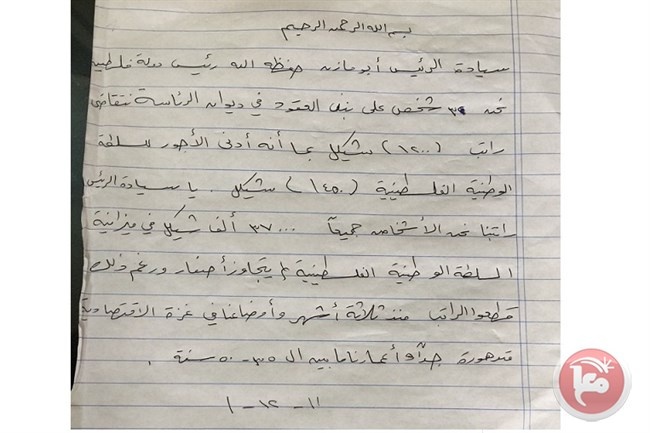 بسم الله الرحمن الرحيم
سيادة الرئيس أبو مازن حفظه الله رئيس دولة فلسطين
نحن ٣٠ شخص على بند العقود في ديوان الرئاسة نتقاضى
راتب (١٢٠٠) شيكل بما أنه أدنى الأجور للسلطة
الوطنية الفلسطينية (١٤٥٠) شيكل . يا سيادة الرئيس
راتبنا نحن الأشخاص جميعاً ٣٧٠٠٠ ألف شيكل في ميزانية
السلطة الوطنية الفلسطينية لم يتجاوز أصفار ورغم ذلك
قطعوا الراتب منذ ثلاثة أشهر وأوضاعنا في غزة الاقتصادية
متدهورة جداً وأعمارنا ما بين ال ٣٥ - ٥٠ سنة .
١١ - ١٢ - ١
معا